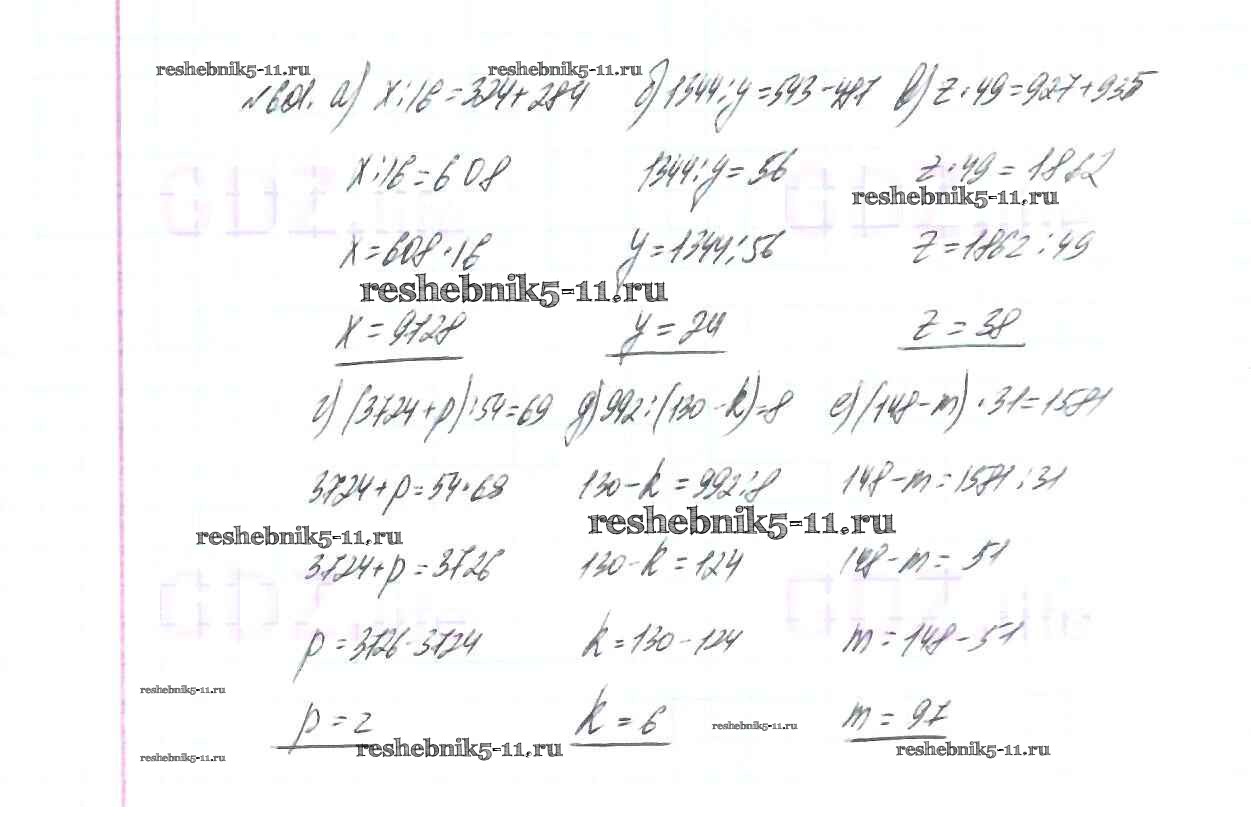 reshebnik5-11.ru reshebnik5-11.ru
№601. а) x:16=324+284 б) 1344:y=543-487 в) z·49=927+935
x:16=608 1344:y=56 z·49=1862
reshebnik5-11.ru
x=608·16 y=1344:56 z=1862:49
reshebnik5-11.ru
x=9728 y=24 z=38
г) (3724+p):54=69 д) 992:(130-k)=8 е) (148-m)·31=1581
3724+p=54·69 130-k=992:8 148-m=1581:31
reshebnik5-11.ru reshebnik5-11.ru
3724+p=3726 130-k=124 148-m=51
p=3726-3724 k=130-124 m=148-51
reshebnik5-11.ru
p=2 k=6 m=97
reshebnik5-11.ru
reshebnik5-11.ru reshebnik5-11.ru reshebnik5-11.ru